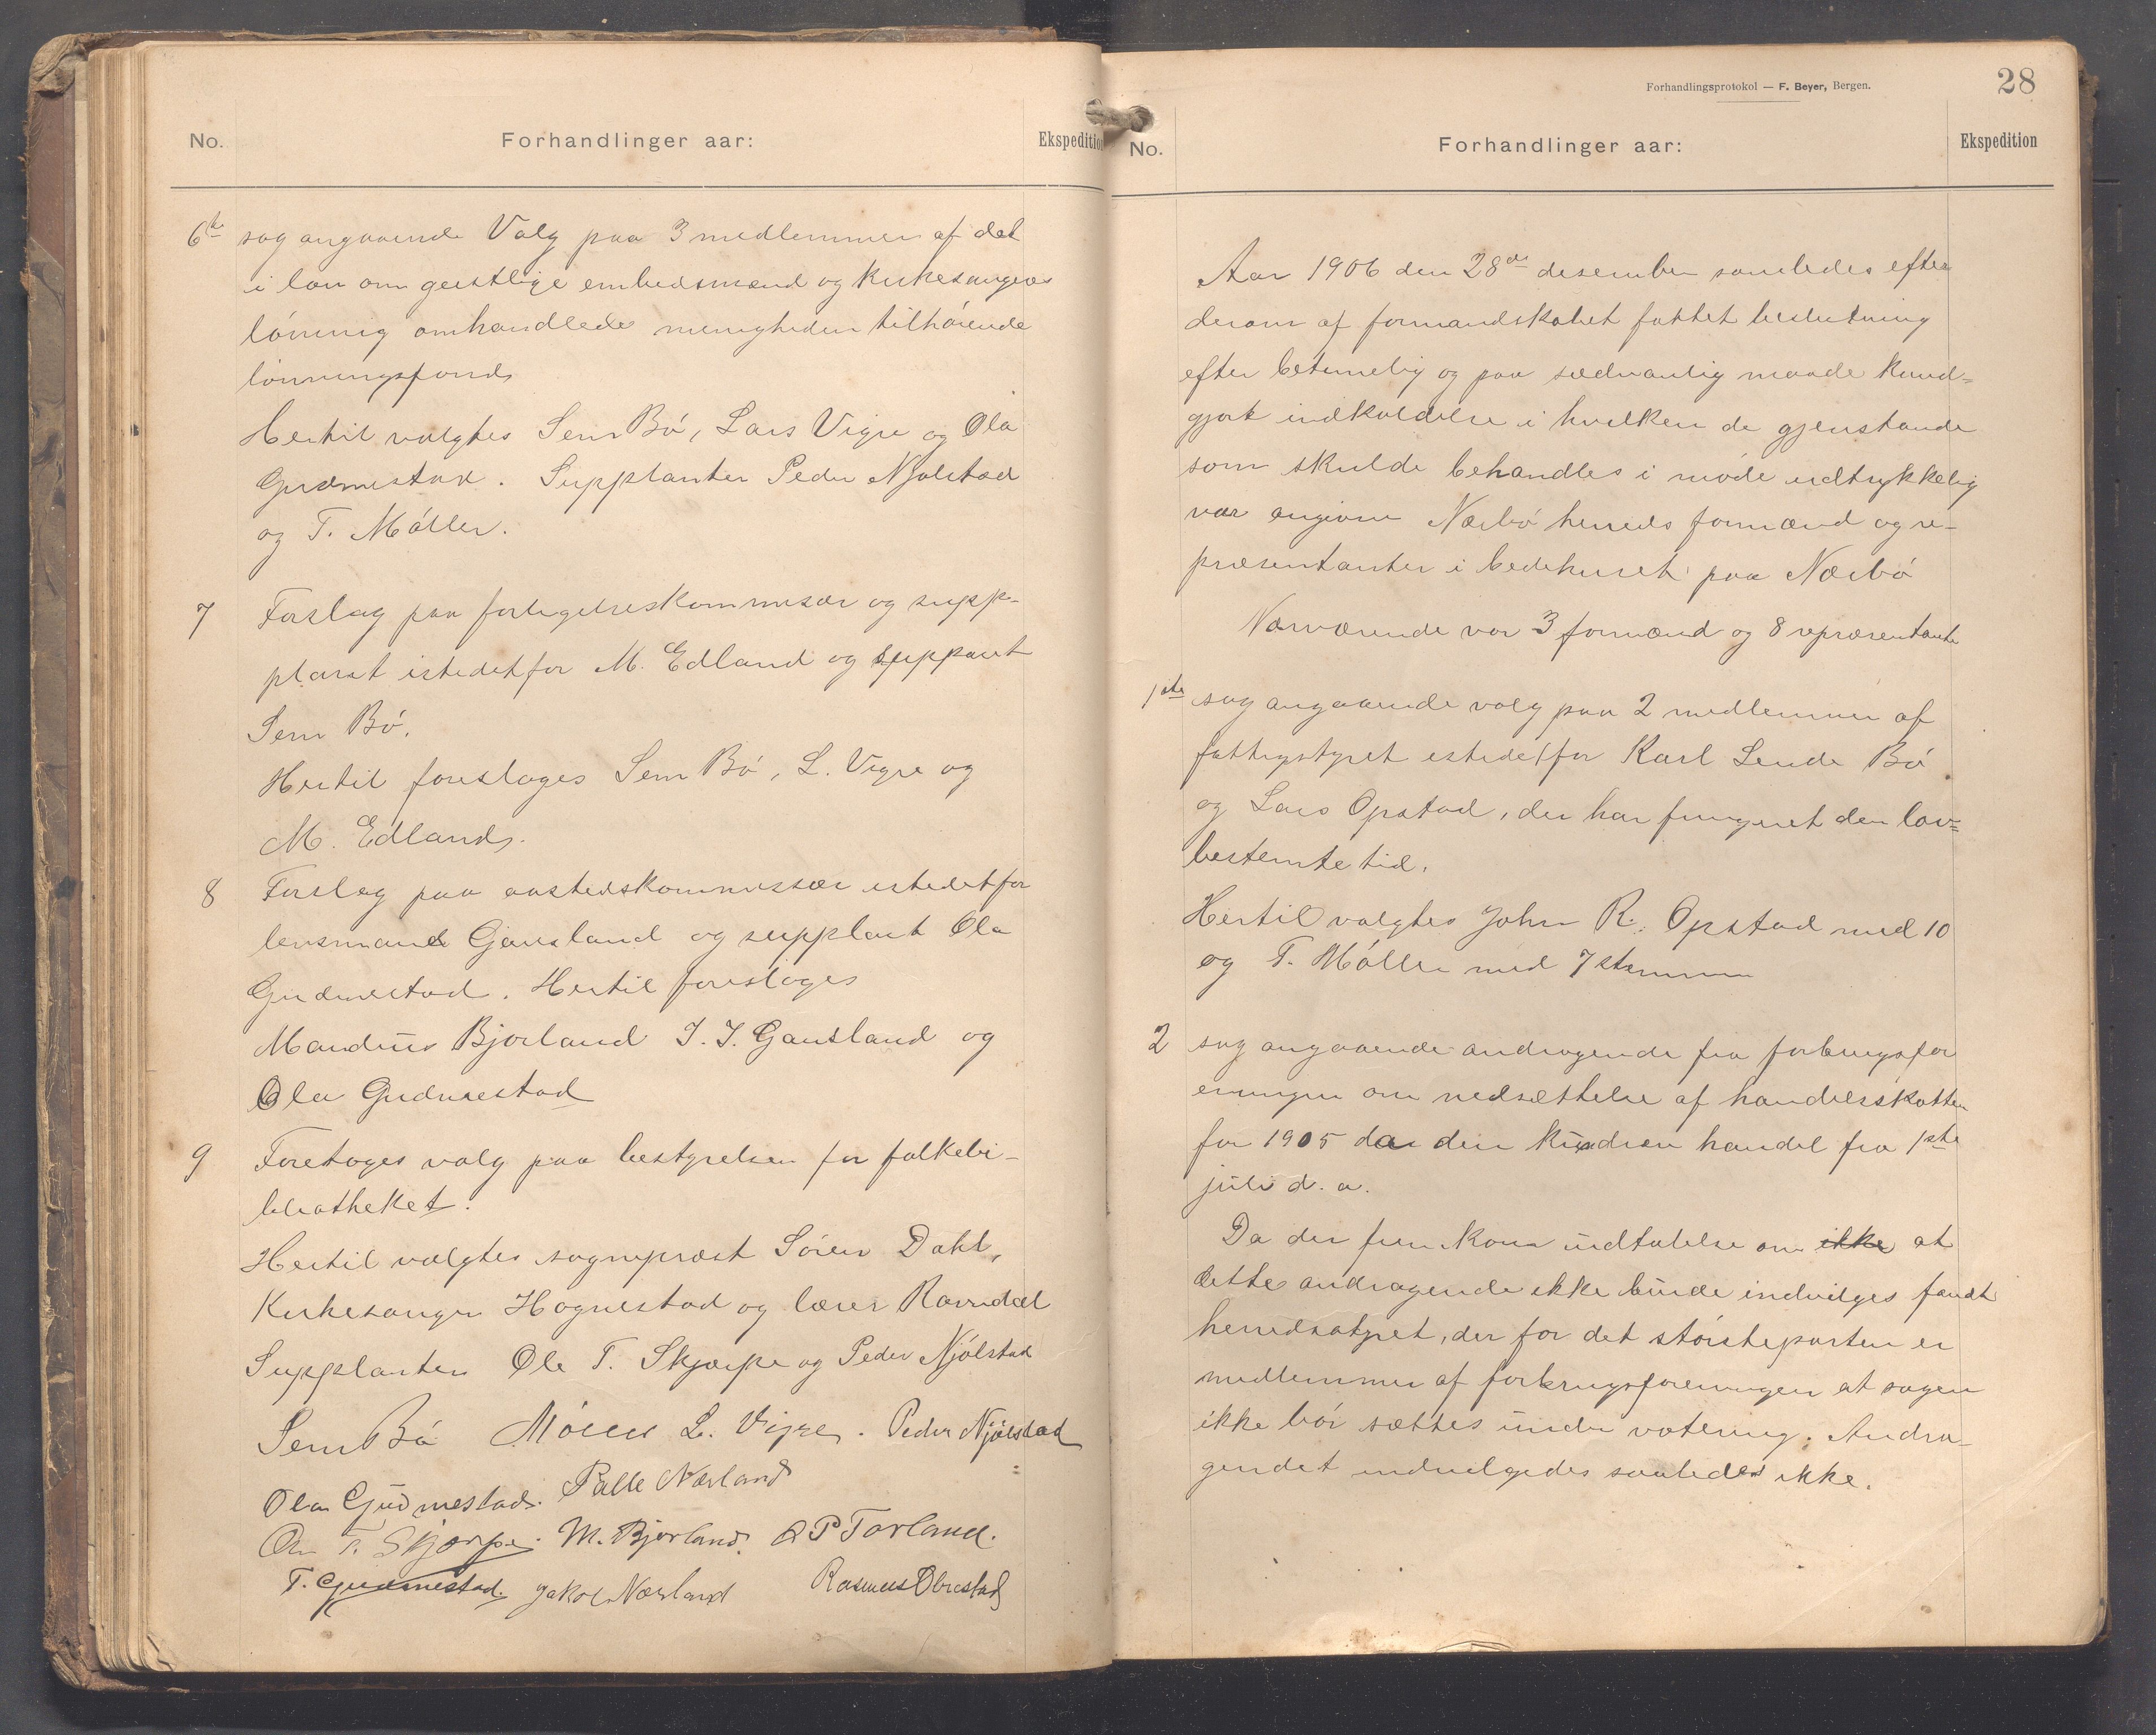 No. Forhandlinger aar: Ekspedition
6te sag angaaende Valg paa 3 medlemmer af det
i lov om geistlige embedsmænd og kirkesangeres
lönning omhandlede menigheden tilhörende
lönningsfond
Hertil valgtes Sem Bö, Lars Vigre og Ola
Gudmestad. Supplanter Peder Njølstad
og T. Möller.
7 Forslag paa forligelseskommisær og supp-
plant istedetfor M. Edland og suppant
Sem Bö.
Hertil foresloges Sem Bö, L. Vigre og
M. Edland.
8 Forslag paa aastedskommissær istedetfor
lensmand Gausland og supplant Ola
Gudmestad. Hertil foresloges
Mandius Bjorland J. J. Gausland og
Ola Gudmestad
9 Foretoges valg paa bestyrelsen for folkebi-
bliotheket.
Hertil valgtes sogneprest Sören Dahl,
Kirkesanger Hognestad og lærer Ravndal
Supplanter Ole T. Skjærpe og Peder Njölstad
Sem Bö Möller L. Vigre. Peder Njölstad
Ola Gudmestad. Palle Nærland
Ole T. Skjærpe. M. Bjorland. O P Torland.
T. Gudmestad. Jakob Nærland Rasmus Obrestad
Forhandlingsprotokol — F. Beyer, Bergen.
28
No. Forhandlinger aar: Ekspedition
Aar 1906 den 28de desember samledes efter
derom af formandskabet fattet beslutning
efter betimelig og paa sædvanlig maade kund-
gjort indkaldelse i hvilken de gjenstande
som skulde behandles i möde udtrykkelig
var angivne Nærbö herreds formænd og re-
præsentanter i bedehuset paa Nærbö
Nærværende var 3 formænd og 8 repræsentanter
1ste sag angaaende valg paa 2 medlemmer af
fattigstyret istedetfor Karl Lende Bö
og Lars Opstad, der har fungeret den lov-
bestemte tid.
Hertil valgtes John R. Opstad med 10
og T. Möller med 7 stemmer
2 sag angaaende andragende fra forbrugsfor
eningen om nedsættelse af handelsskatten
for 1905 da den kun drev handel fra 1ste
juli d. a.
Da der fremkom udtalelse om ikke at
dette andragende ikke burde indvilges fandt
herredsstyret, der for det störsteparten er
medlemmer af forbrugsforeningen at sagen
ikke bör sættes under votering. Andra-
gendet indvilgedes saaledes ikke.